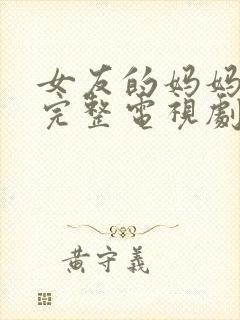 女友的妈妈
完整電視劇
黄守義